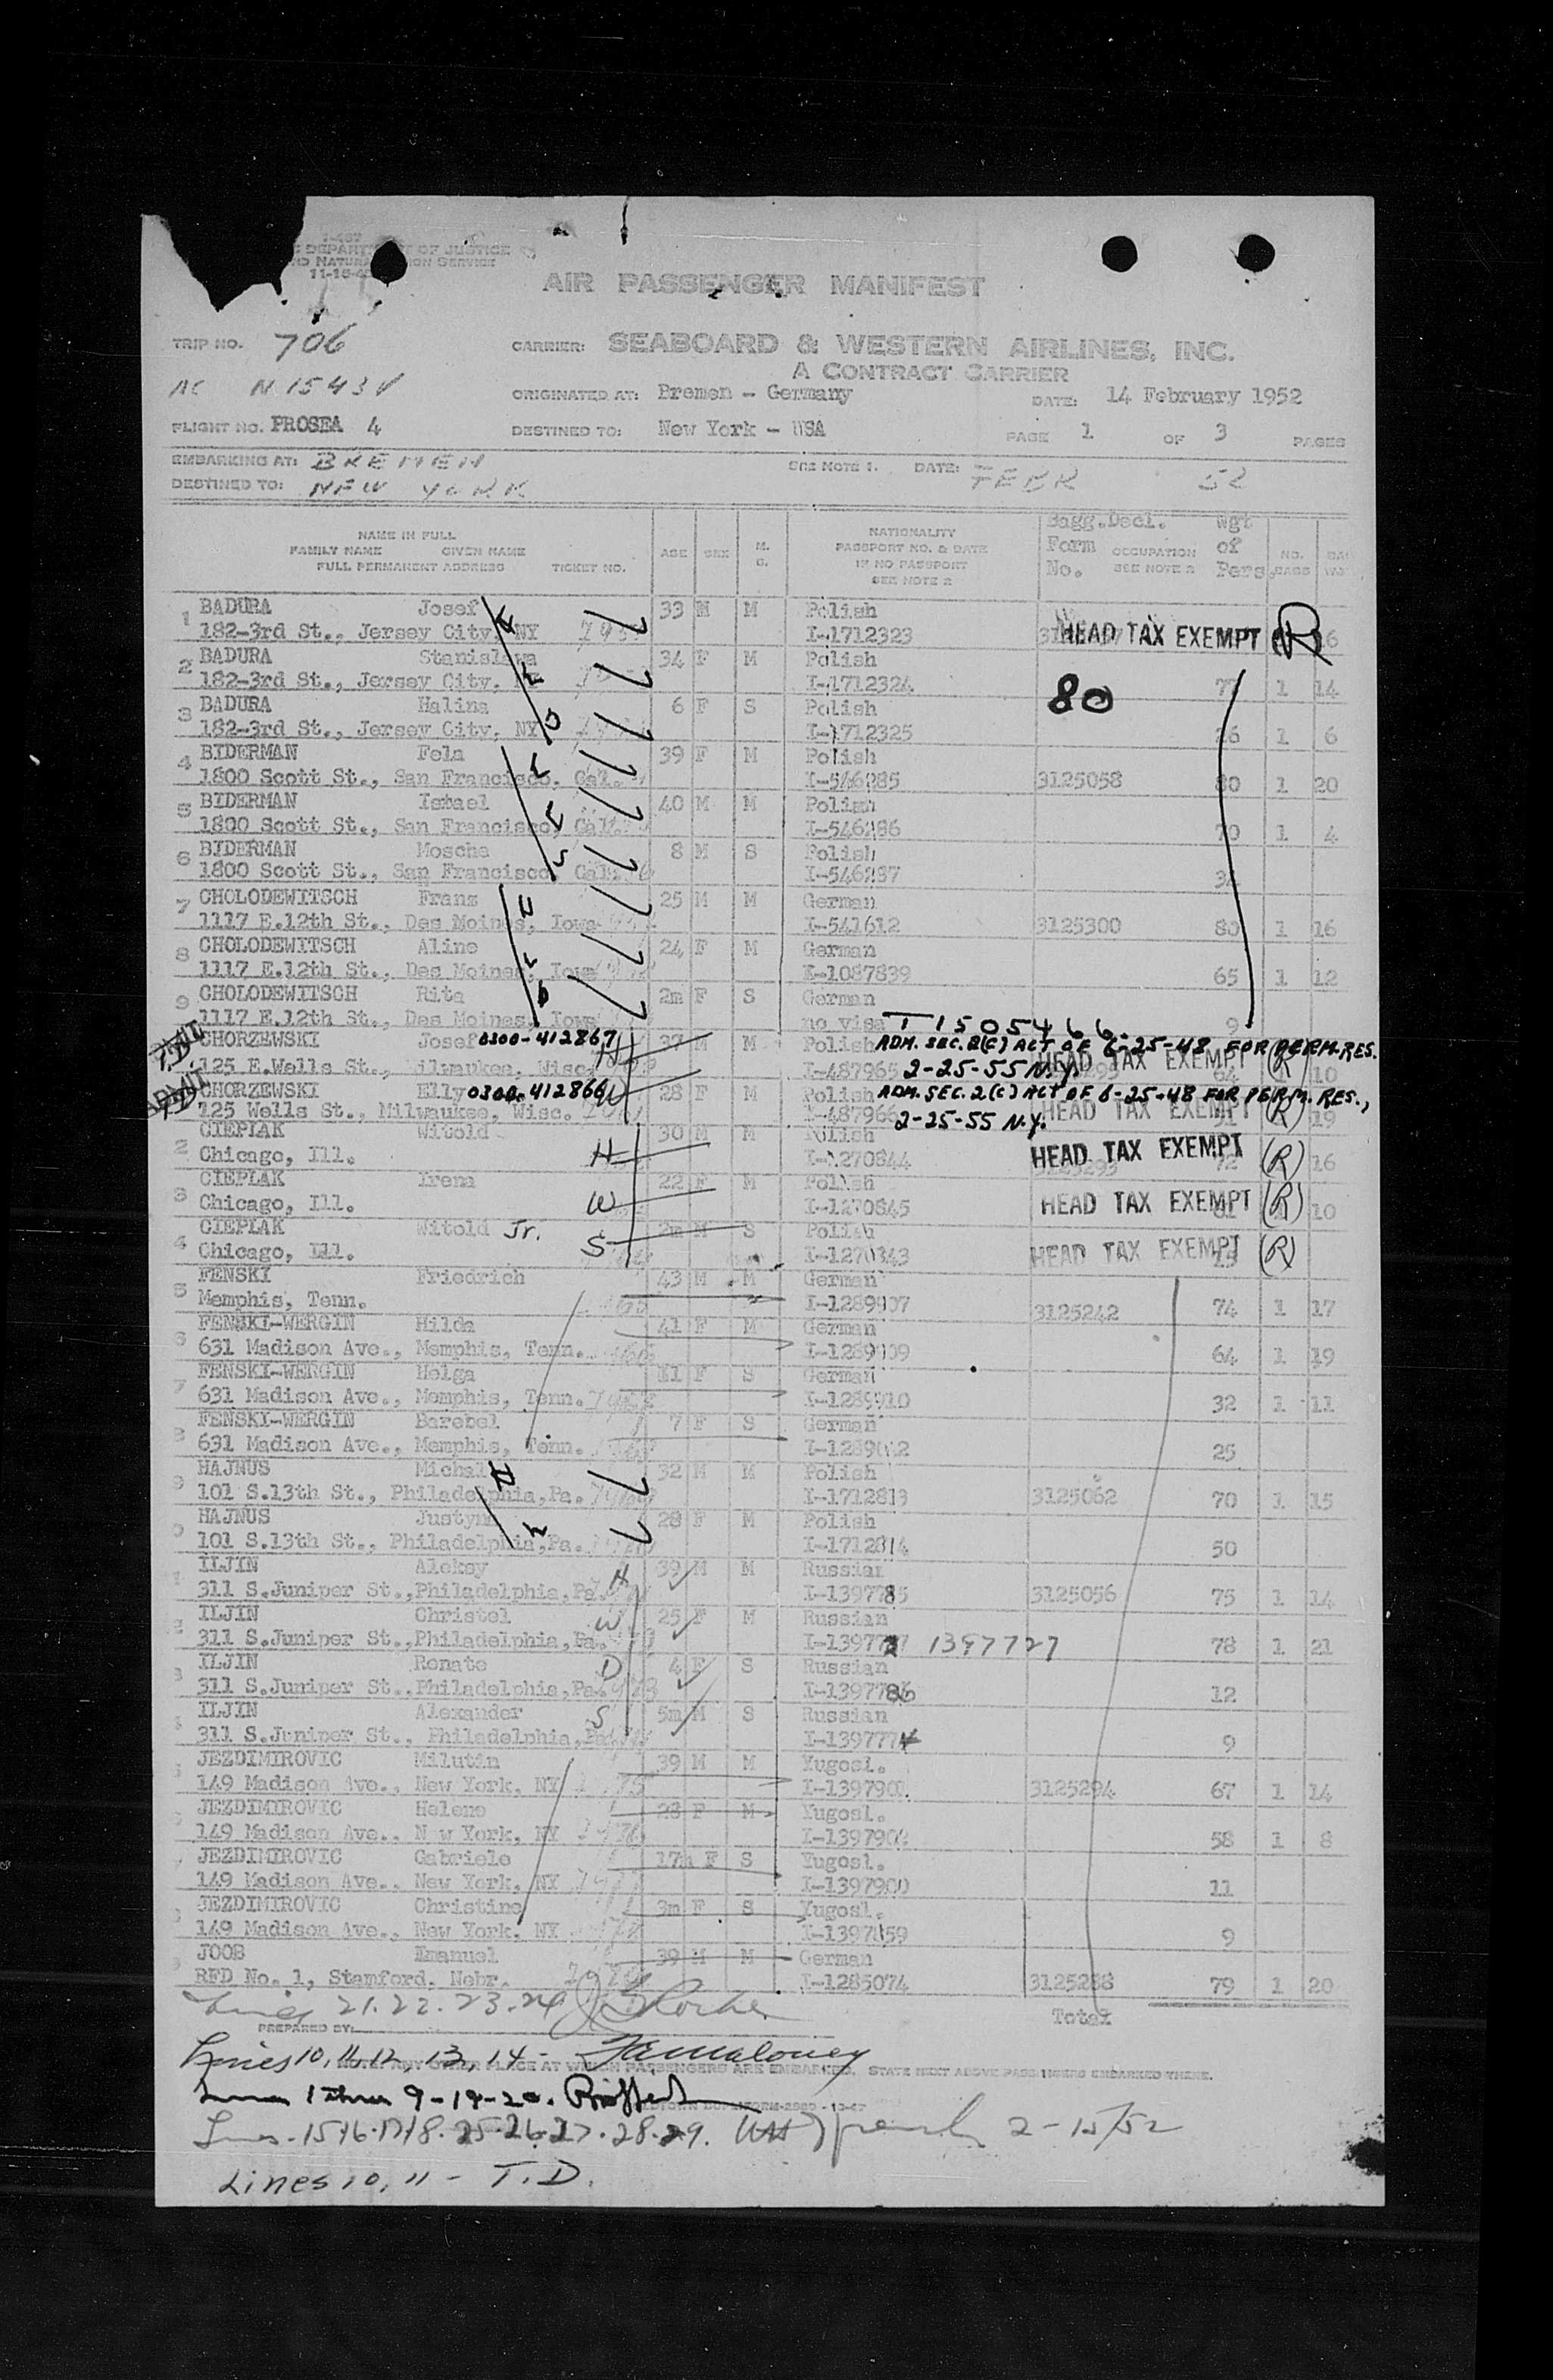 I-467
DEPARTMENT OF JUSTICE
11-16-4
AIR PASSENGER MANIFEST
TRIP NO. 706 CARRIER: SEABOARD & WESTERN AIRLINES, INC.
A CONTRACT CARRIER
AC N1543V ORIGINATED AT: Bremen - Germany DATE: 14 February 1952
FLIGHT NO. PROSEA 4 DESTINED TO: New York - USA PAGE 1 OF 3 PAGES
EMBARKING AT: BREMEN SEE NOTE 1. DATE: FEBR 52
DESTINED TO: NEW YORK
NAME IN FULL
FAMILY NAME GIVEN NAME
FULL PERMANENT ADDRESS TICKET NO. AGE SEX M. S.
NATIONALITY
PASSPORT NO. & DATE
IF NO PASSPORT
SEE NOTE 2
Bagg.Decl. Form No. OCCUPATION SEE NOTE 2 Wgt of Pers. NO. BAGS
1 BADURA Josef H 33 M M Polish
182-3rd St., Jersey City, NY I-1712323 HEAD TAX EXEMPT (R) 16
2 BADURA Stanislawa 34 F M Polish
182-3rd St., Jersey City, I-1712324 80 1 14
3 BADURA Halina D 6 F S Polish
182-3rd St., Jersey City, NY I-1712325 26 1 6
4 BIDERMAN Fela 39 F M Polish
1800 Scott St., San Francisco, Cal. I-546285 3125058 80 1 20
5 BIDERMAN Ismael 40 M M Polish
1800 Scott St., San Francisco, Cal. I-546286 70 1 4
6 BIDERMAN Moscha S 8 M S Polish
1800 Scott St., San Francisco, Cal. I-546287
7 CHOLODEWITSCH Franz H 25 M M German
1117 E.12th St., Des Moines, Iowa I-541612 3125300 80 1 16
8 CHOLODEWITSCH Aline 24 F M German
1117 E.12th St., Des Moines, Iowa I-1087839 65 1 12
9 CHOLODEWITSCH Rita D 2m F S German
1117 E.12th St., Des Moines, Iowa no visa T 1505466 9
CHORZEWSKI Josef 0300-412867 H 37 M M Polish ADM. SEC. 2(C) ACT OF 6-25-48 FOR PERM. RES.
125 E.Wells St., Milwaukee, Wisc. I-487965 2-25-55 N.Y. HEAD TAX EXEMPT (R) 10
CHORZEWSKI Elly 0300-412866 W 28 F M Polish ADM. SEC. 2(C) ACT OF 6-25-48 FOR PERM. RES.,
125 Wells St., Milwaukee, Wisc. I-487966 2-25-55 N.Y. HEAD TAX EXEMPT (R) 19
2 CIEPLAK Witold 30 M M Polish
Chicago, Ill. H I-1270844 HEAD TAX EXEMPT (R) 16
3 CIEPLAK Irena 22 F M Polish
Chicago, Ill. W I-1270845 HEAD TAX EXEMPT (R) 10
4 CIEPLAK Witold Jr. 2m M S Polish
Chicago, Ill. S I-1270843 HEAD TAX EXEMPT (R)
5 FENSKI Friedrich 43 M M German
Memphis, Tenn. I-1289907 3125242 74 1 17
6 FENSKI-WERGIN Hilda 41 F M German
631 Madison Ave., Memphis, Tenn. I-1289909 64 1 19
7 FENSKI-WERGIN Helga 11 F S German
631 Madison Ave., Memphis, Tenn. I-1289910 32 1 11
8 FENSKI-WERGIN Barebel 7 F S German
631 Madison Ave., Memphis, Tenn. 25
9 HAJNUS Michal H 32 M M Polish
101 S.13th St., Philadelphia,Pa. I-1712813 3125062 70 1 15
0 HAJNUS Justyna 28 F M Polish
101 S.13th St., Philadelphia,Pa. I-1712814 50
ILJIN Aleksy H 39 M M Russian
311 S.Juniper St.,Philadelphia,Pa. I-1397785 3125056 75 1 14
ILJIN Christel W 25 F M Russian
311 S.Juniper St.,Philadelphia,Pa. 1397727 78 1 21
ILJIN Renate D 4 F S Russian
311 S.Juniper St.,Philadelphia,Pa. I-1397786 12
ILJIN Alexander S 5m M S Russian
311 S.Juniper St., Philadelphia,Pa. I-1397774 9
JEZDIMIROVIC Milutin 39 M M Yugosl.
149 Madison Ave., New York, NY I-1397901 3125294 67 1 14
JEZDIMIROVIC Helene 28 F M Yugosl.
149 Madison Ave., N w York, NY I-1397902 58 1 8
JEZDIMIROVIC Gabriele 17m F S Yugosl.
149 Madison Ave., New York, NY I-1397900 11
JEZDIMIROVIC Christine 3m F S Yugosl.
149 Madison Ave., New York, NY I-1397859 9
JOOB Emanuel 39 M M German
RFD No. 1, Stamford, Nebr. I-1285074 3125288 79 1 20
Lines 21.22.23.24 Total
PREPARED BY:
Lines 10, 11, 12, 13, 14 - Maloney
PLACE AT WHICH PASSENGERS ARE EMBARKED, STATE NEXT ABOVE PASSENGERS EMBARKED THERE.
Lines 1 thru 9-19-20.
Lines 15-16-17-18-25-26-27-28-29. 2-15/52
Lines 10, 11 - T.D.